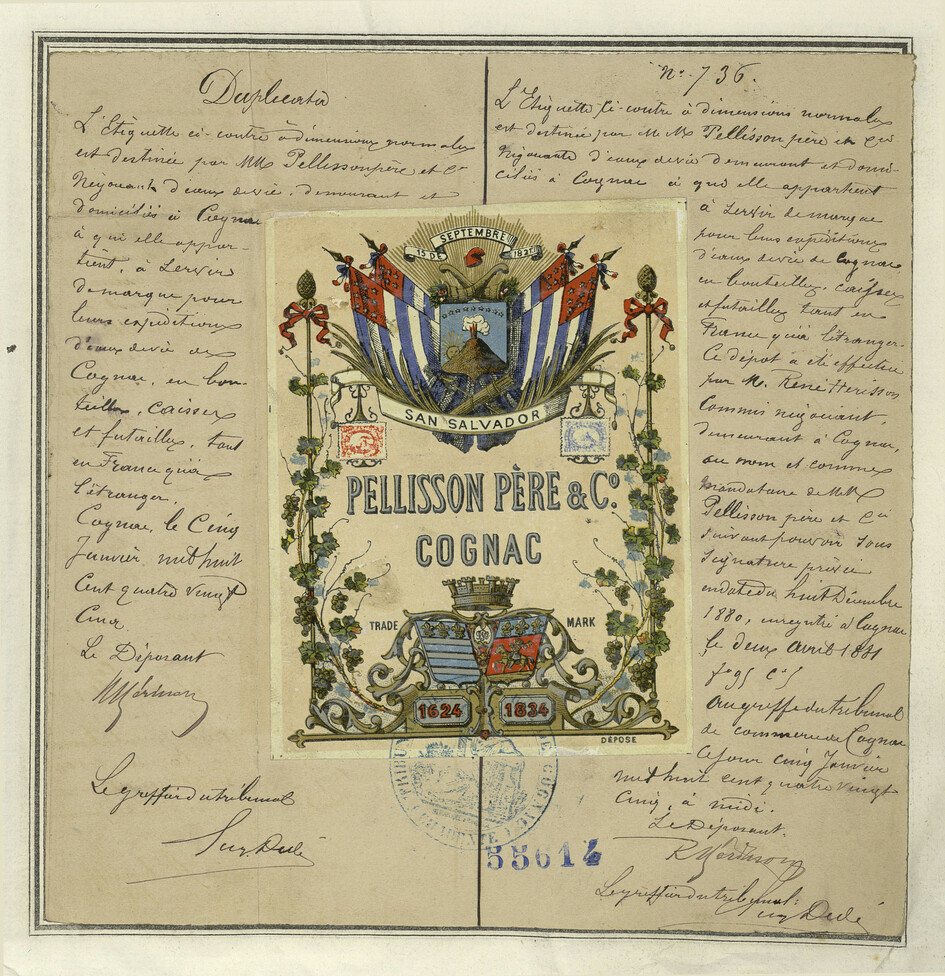 Duplicata
L'Etiquette ci-contre à dimensions normales
est destinée par MM Pellisson père et Cie
Négociants d'eaux de vie, demeurant et
domiciliés à Cognac
à qui elle appar-
tient, à servir
de marque pour
leurs expéditions
d'eaux de vie de
Cognac, en bou-
teilles, caisses
et futailles, tant
en France qu'à
l'étranger.
Cognac, le Cinq
Janvier mil huit
Cent quatre vingt
Cinq
Le Déposant
Le greffier du tribunal
No. 736.
L'Etiquette ci-contre à dimensions normales
est destinée par M M Pellisson père et Cie
Négociants d'eaux de vie demeurant et domi-
ciliés à Cognac à qui elle appartient
à servir de marque
pour leurs expéditions
d'eaux de vie de Cognac
en bouteilles, caisses
et futailles tant en
France qu'à l'étranger.
Ce dépot a été effectué
par M. René Herisson
Commis négociant,
demeurant à Cognac,
au nom et comme
mandataire de MM
Pellisson père et Cie
suivant pouvoir sous
signature privée
en date du huit Décembre
1880, enregistré à Cognac
le deux avril 1881
fo 95 Co 5
Au greffe du tribunal
de commerce de Cognac
ce jour cinq Janvier
mil huit cent quatre vingt
Cinq, à midi.
Le Déposant.
Le greffier du tribunal:
SEPTEMBRE
15 DE 1821
SAN SALVADOR
PELLISSON PÈRE & Co.
COGNAC
TRADE MARK
1624 1834
DÉPOSÉ
55614